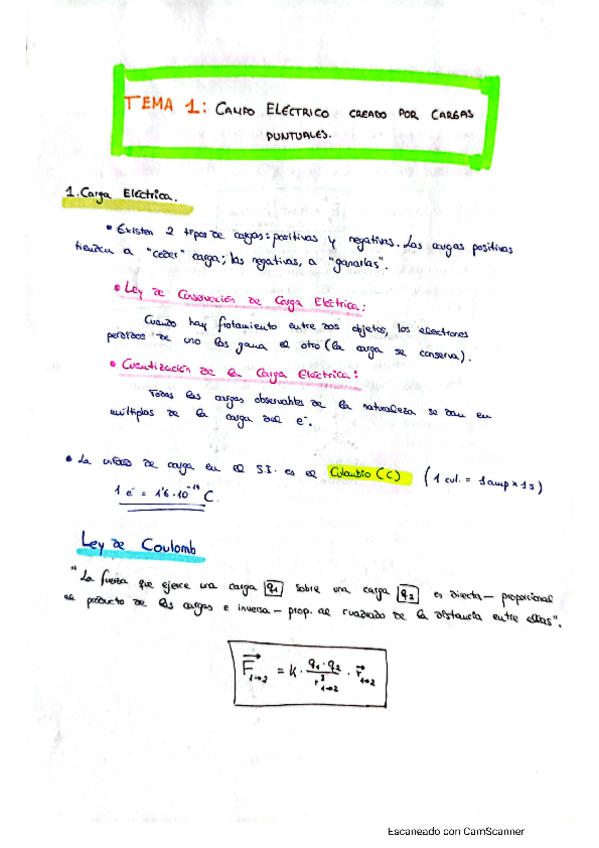 TEMA 1: CAMPO ELÉCTRICO CREADO POR CARGAS
PUNTUALES.
1. Carga Eléctrica.
• Existen 2 tipos de cargas: positivas y negativas. Las cargas positivas
tienden a "ceder" carga; las negativas, a "ganarlas".
• Ley de Conservación de Carga Eléctrica:
Cuando hay frotamiento entre dos objetos, los electrones
perdidos de uno los gana el otro (la carga se conserva).
• Cuantización de la Carga Eléctrica:
Todas las cargas observables de la naturaleza se dan en
múltiplos de la carga del e⁻.
• La unidad de carga en el S.I. es el Coulombio (C) (1 cul. = 1amp × 1s)
1 e⁻ = 1'6·10⁻¹⁹ C.
Ley de Coulomb
"La fuerza que ejerce una carga q₁ sobre una carga q₂ es directa – proporcional
al producto de las cargas e inversa – prop. al cuadrado de la distancia entre ellas".
F⃗₁→₂ = K · q₁·q₂ / r²₁→₂ · r⃗₁→₂
Escaneado con CamScanner